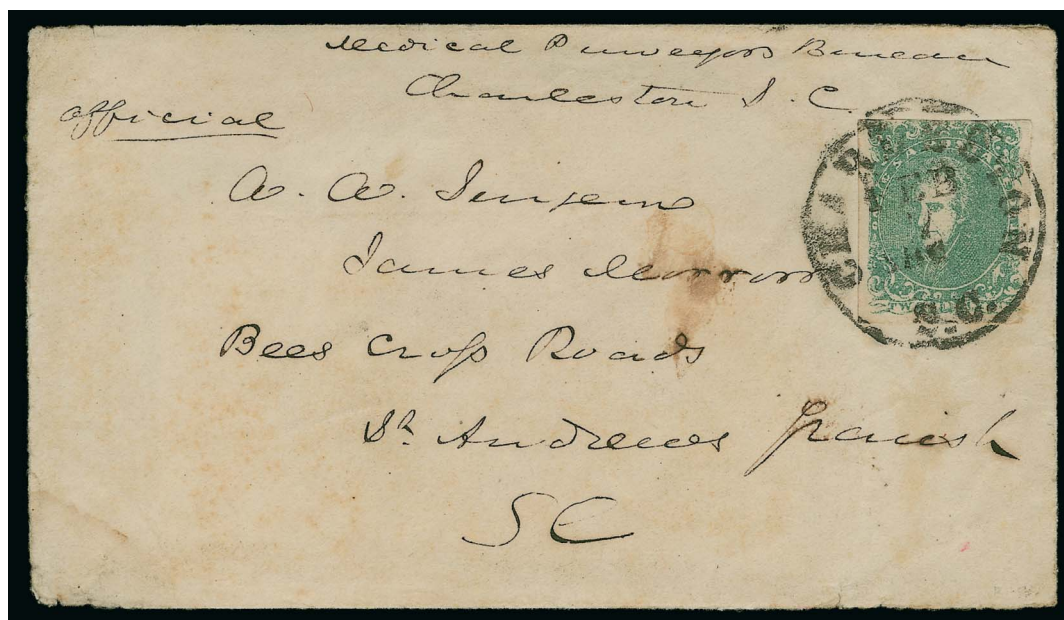 Medical Purveyors Bureau
Charleston S.C.
official
A. A. Surgeon
James Morrow
Bees Cross Roads
St Andrews Parish
SC
CHARLESTON
FEB
S.C.
TWO